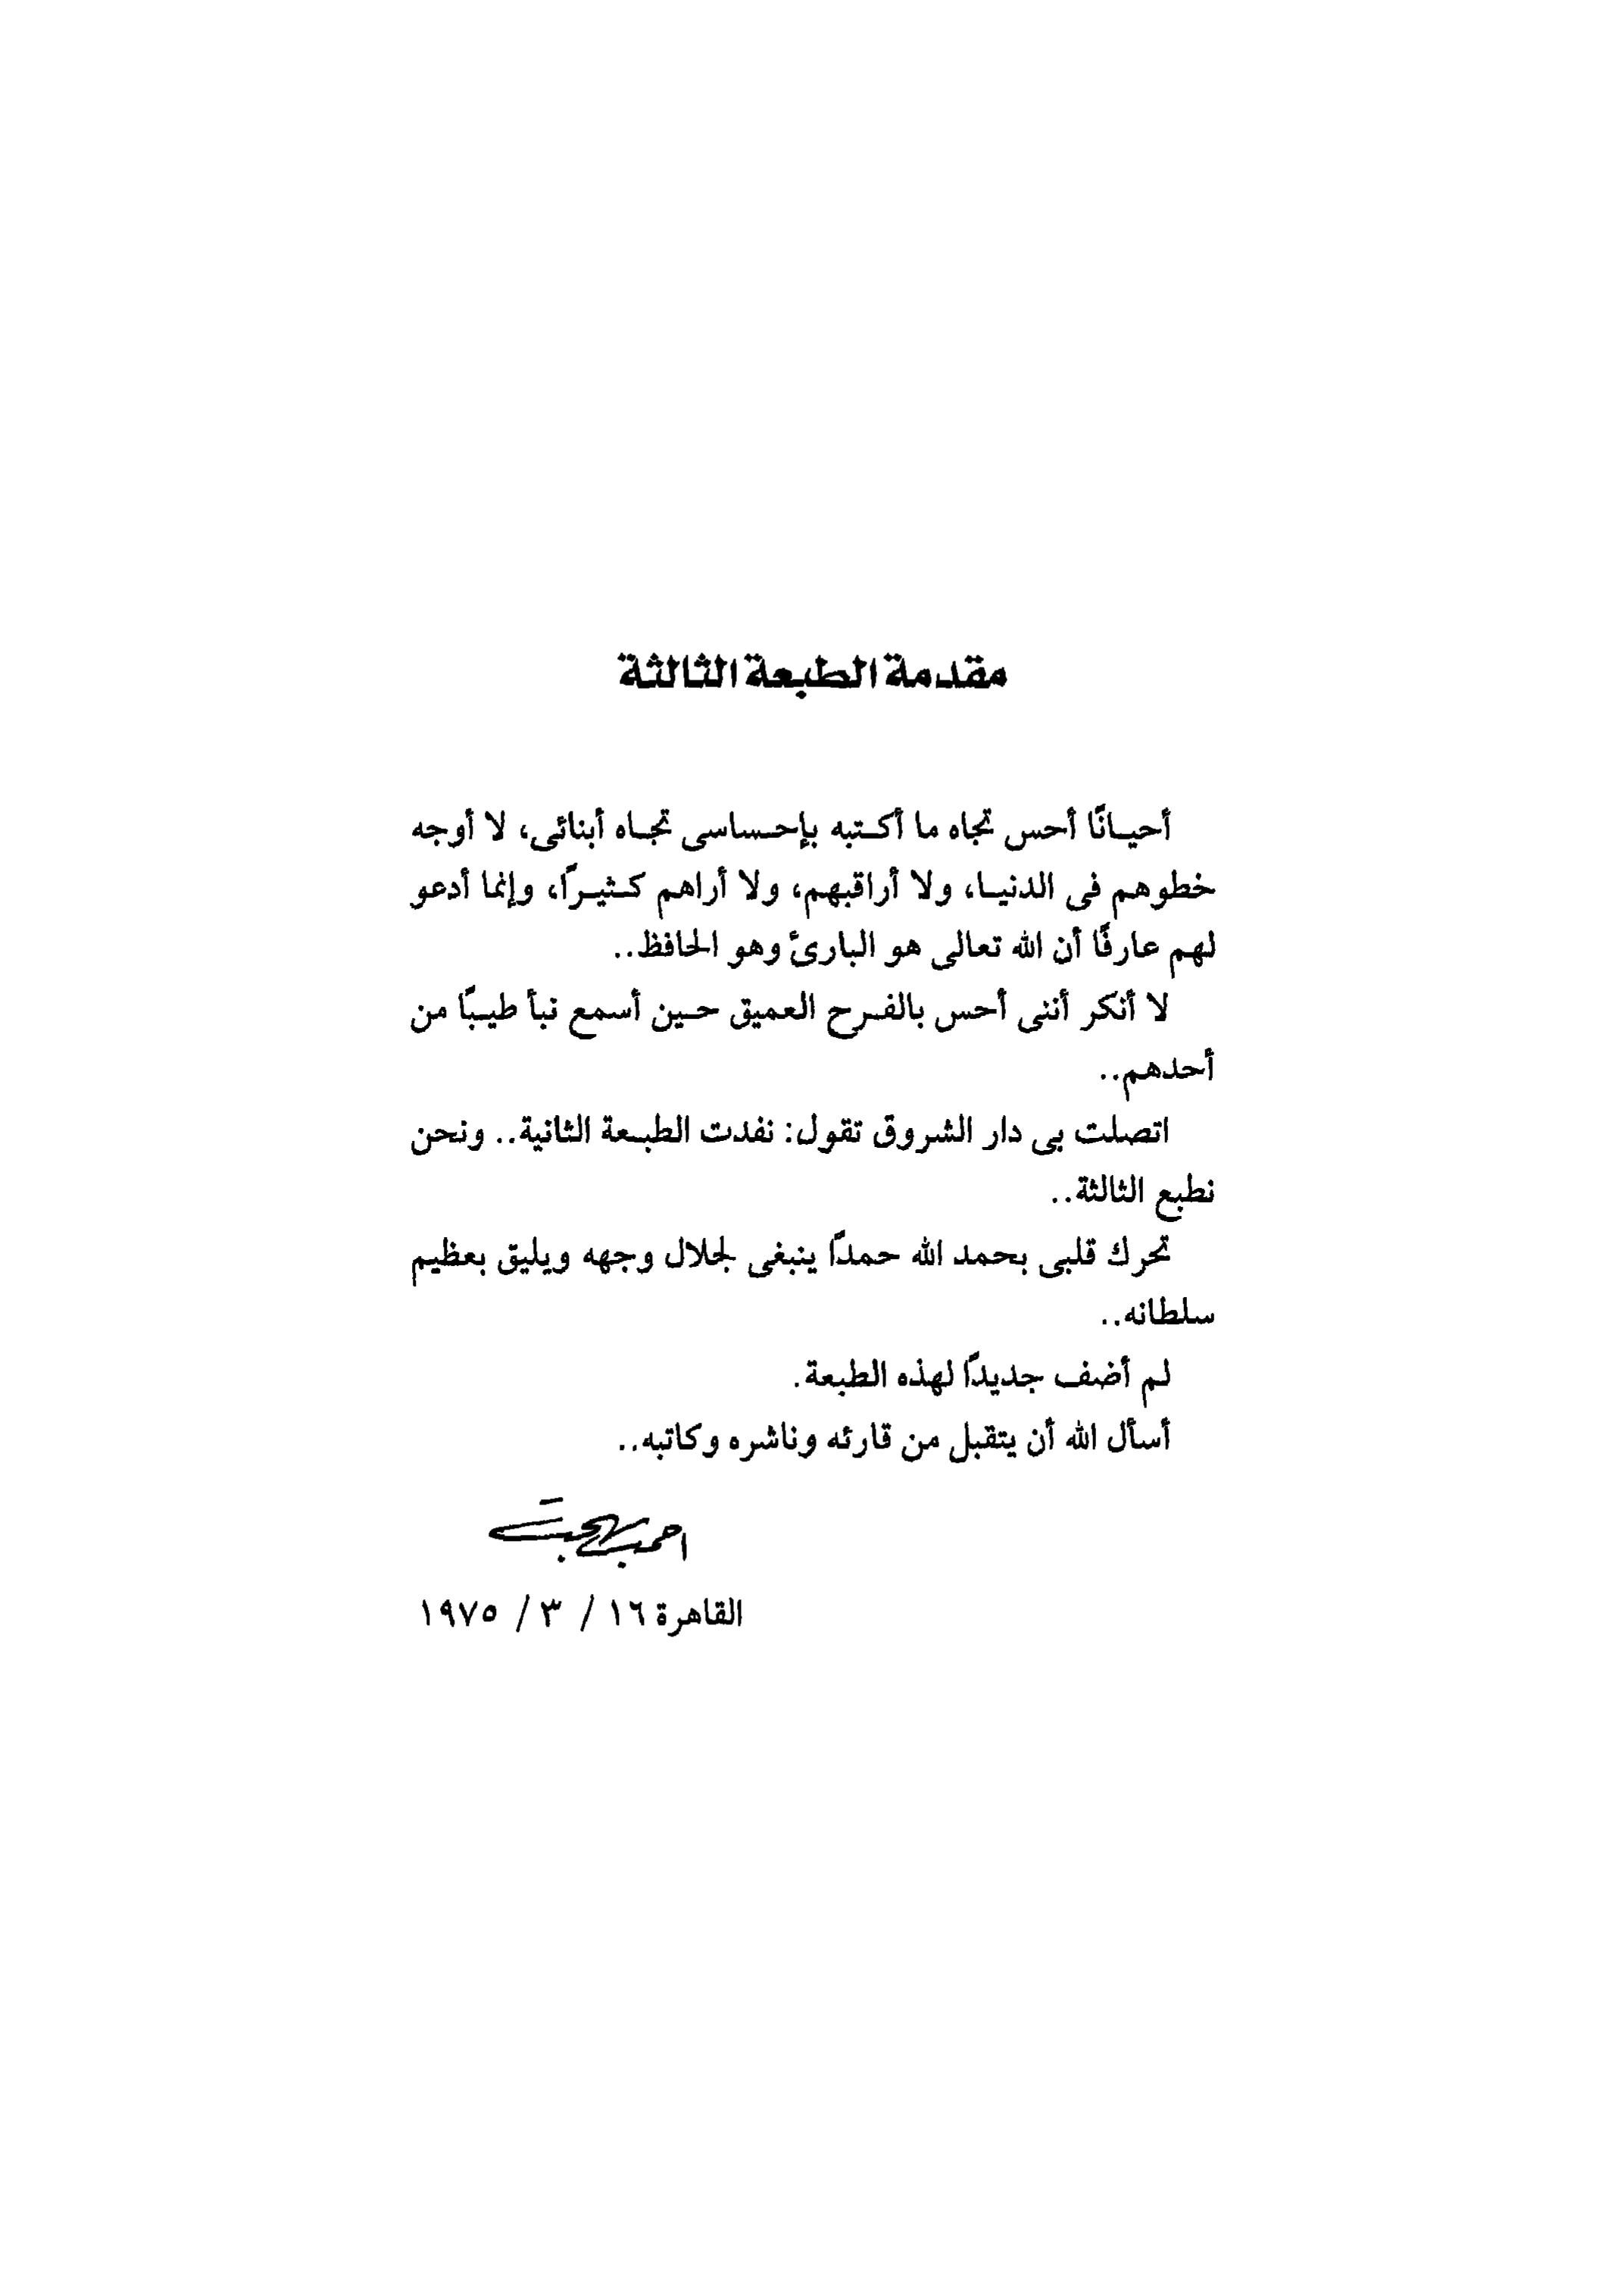 مقدمة الطبعة الثالثة
أحيانًا أحس تجاه ما أكتبه بإحساسى تجاه أبنائى، لا أوجه
خطوهم فى الدنيا، ولا أراقبهم، ولا أراهم كثيرًا، وإنما أدعو
لهم عارفًا أن الله تعالى هو البارئ وهو الحافظ..
لا أنكر أننى أحس بالفرح العميق حين أسمع نبأ طيبًا من
أحدهم..
اتصلت بى دار الشروق تقول: نفدت الطبعة الثانية.. ونحن
نطبع الثالثة..
تحرك قلبى بحمد الله حمدًا ينبغى لجلال وجهه ويليق بعظيم
سلطانه..
لم أضف جديدًا لهذه الطبعة.
أسأل الله أن يتقبل من قارئه وناشره وكاتبه..
احمد بهجت
القاهرة ١٦ / ٣ / ١٩٧٥